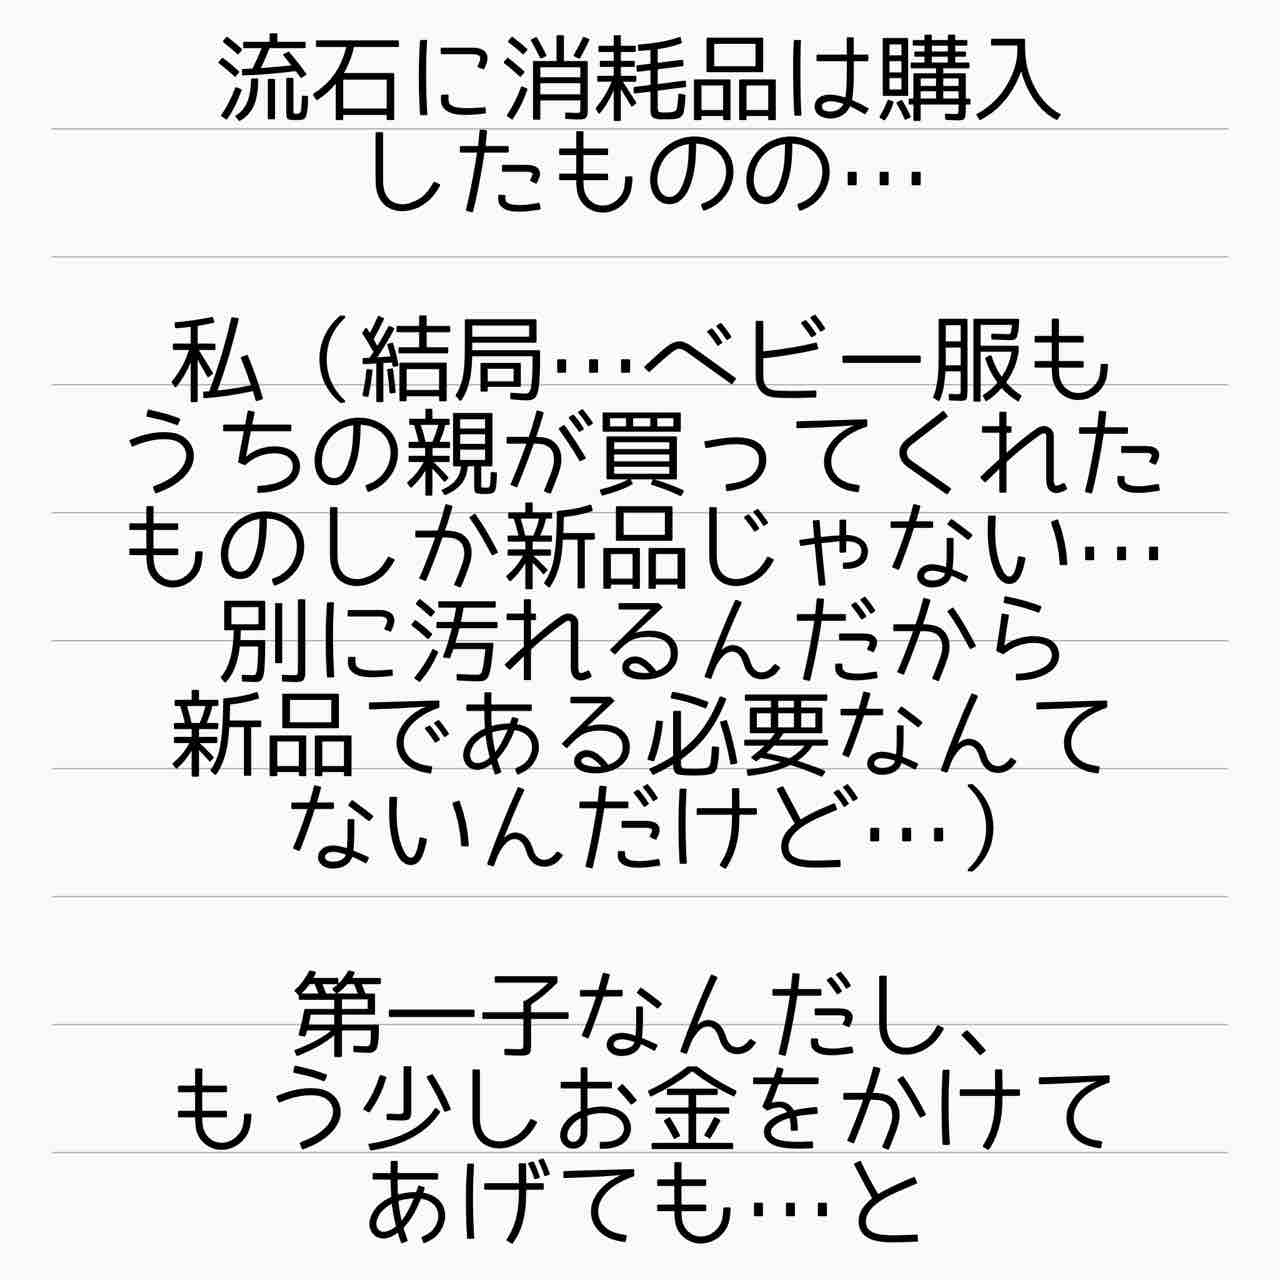 流石に消耗品は購入
したものの…
私（結局…ベビー服も
うちの親が買ってくれた
ものしか新品じゃない…
別に汚れるんだから
新品である必要なんて
ないんだけど…）
第一子なんだし、
もう少しお金をかけて
あげても…と